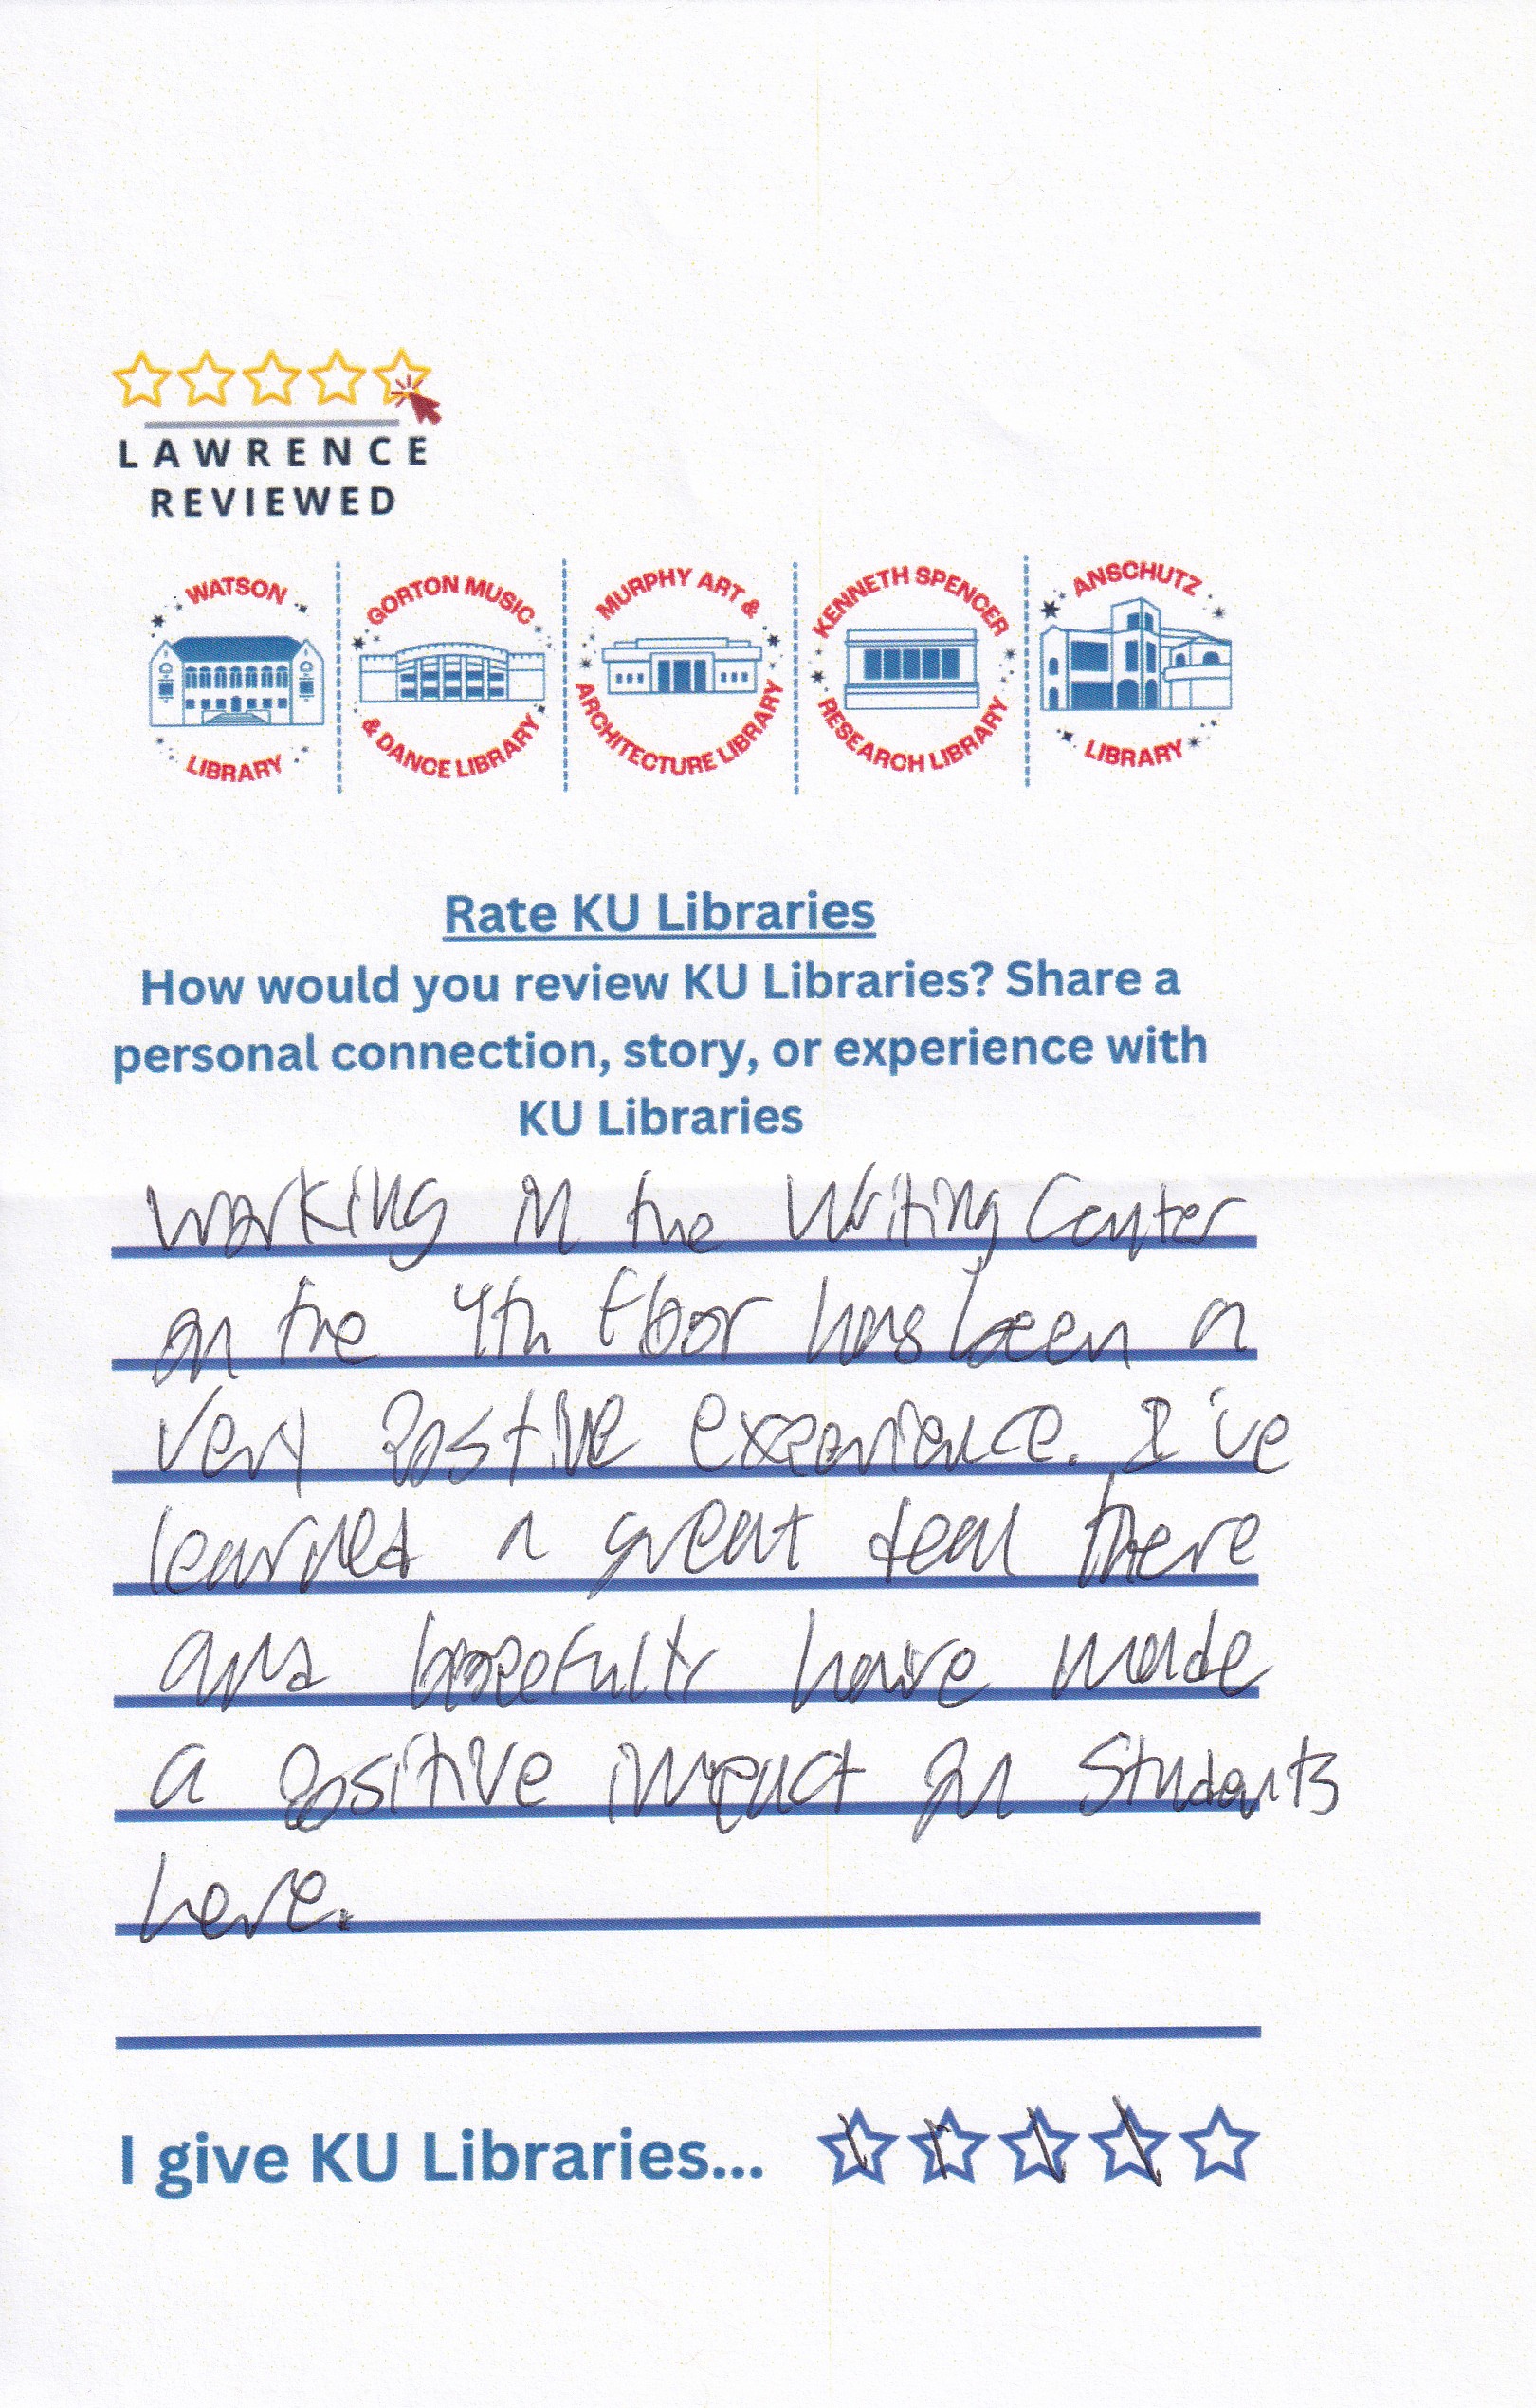 LAWRENCE
REVIEWED
WATSON
LIBRARY
GORTON MUSIC
& DANCE LIBRARY
MURPHY ART &
ARCHITECTURE LIBRARY
KENNETH SPENCER
RESEARCH LIBRARY
ANSCHUTZ
LIBRARY
Rate KU Libraries
How would you review KU Libraries? Share a
personal connection, story, or experience with
KU Libraries
Working in the Writing Center
on the 4th floor has been a
very postive experience. I've
learned a great deal there
and hopefully have made
a positive impact on Students
here.
I give KU Libraries...